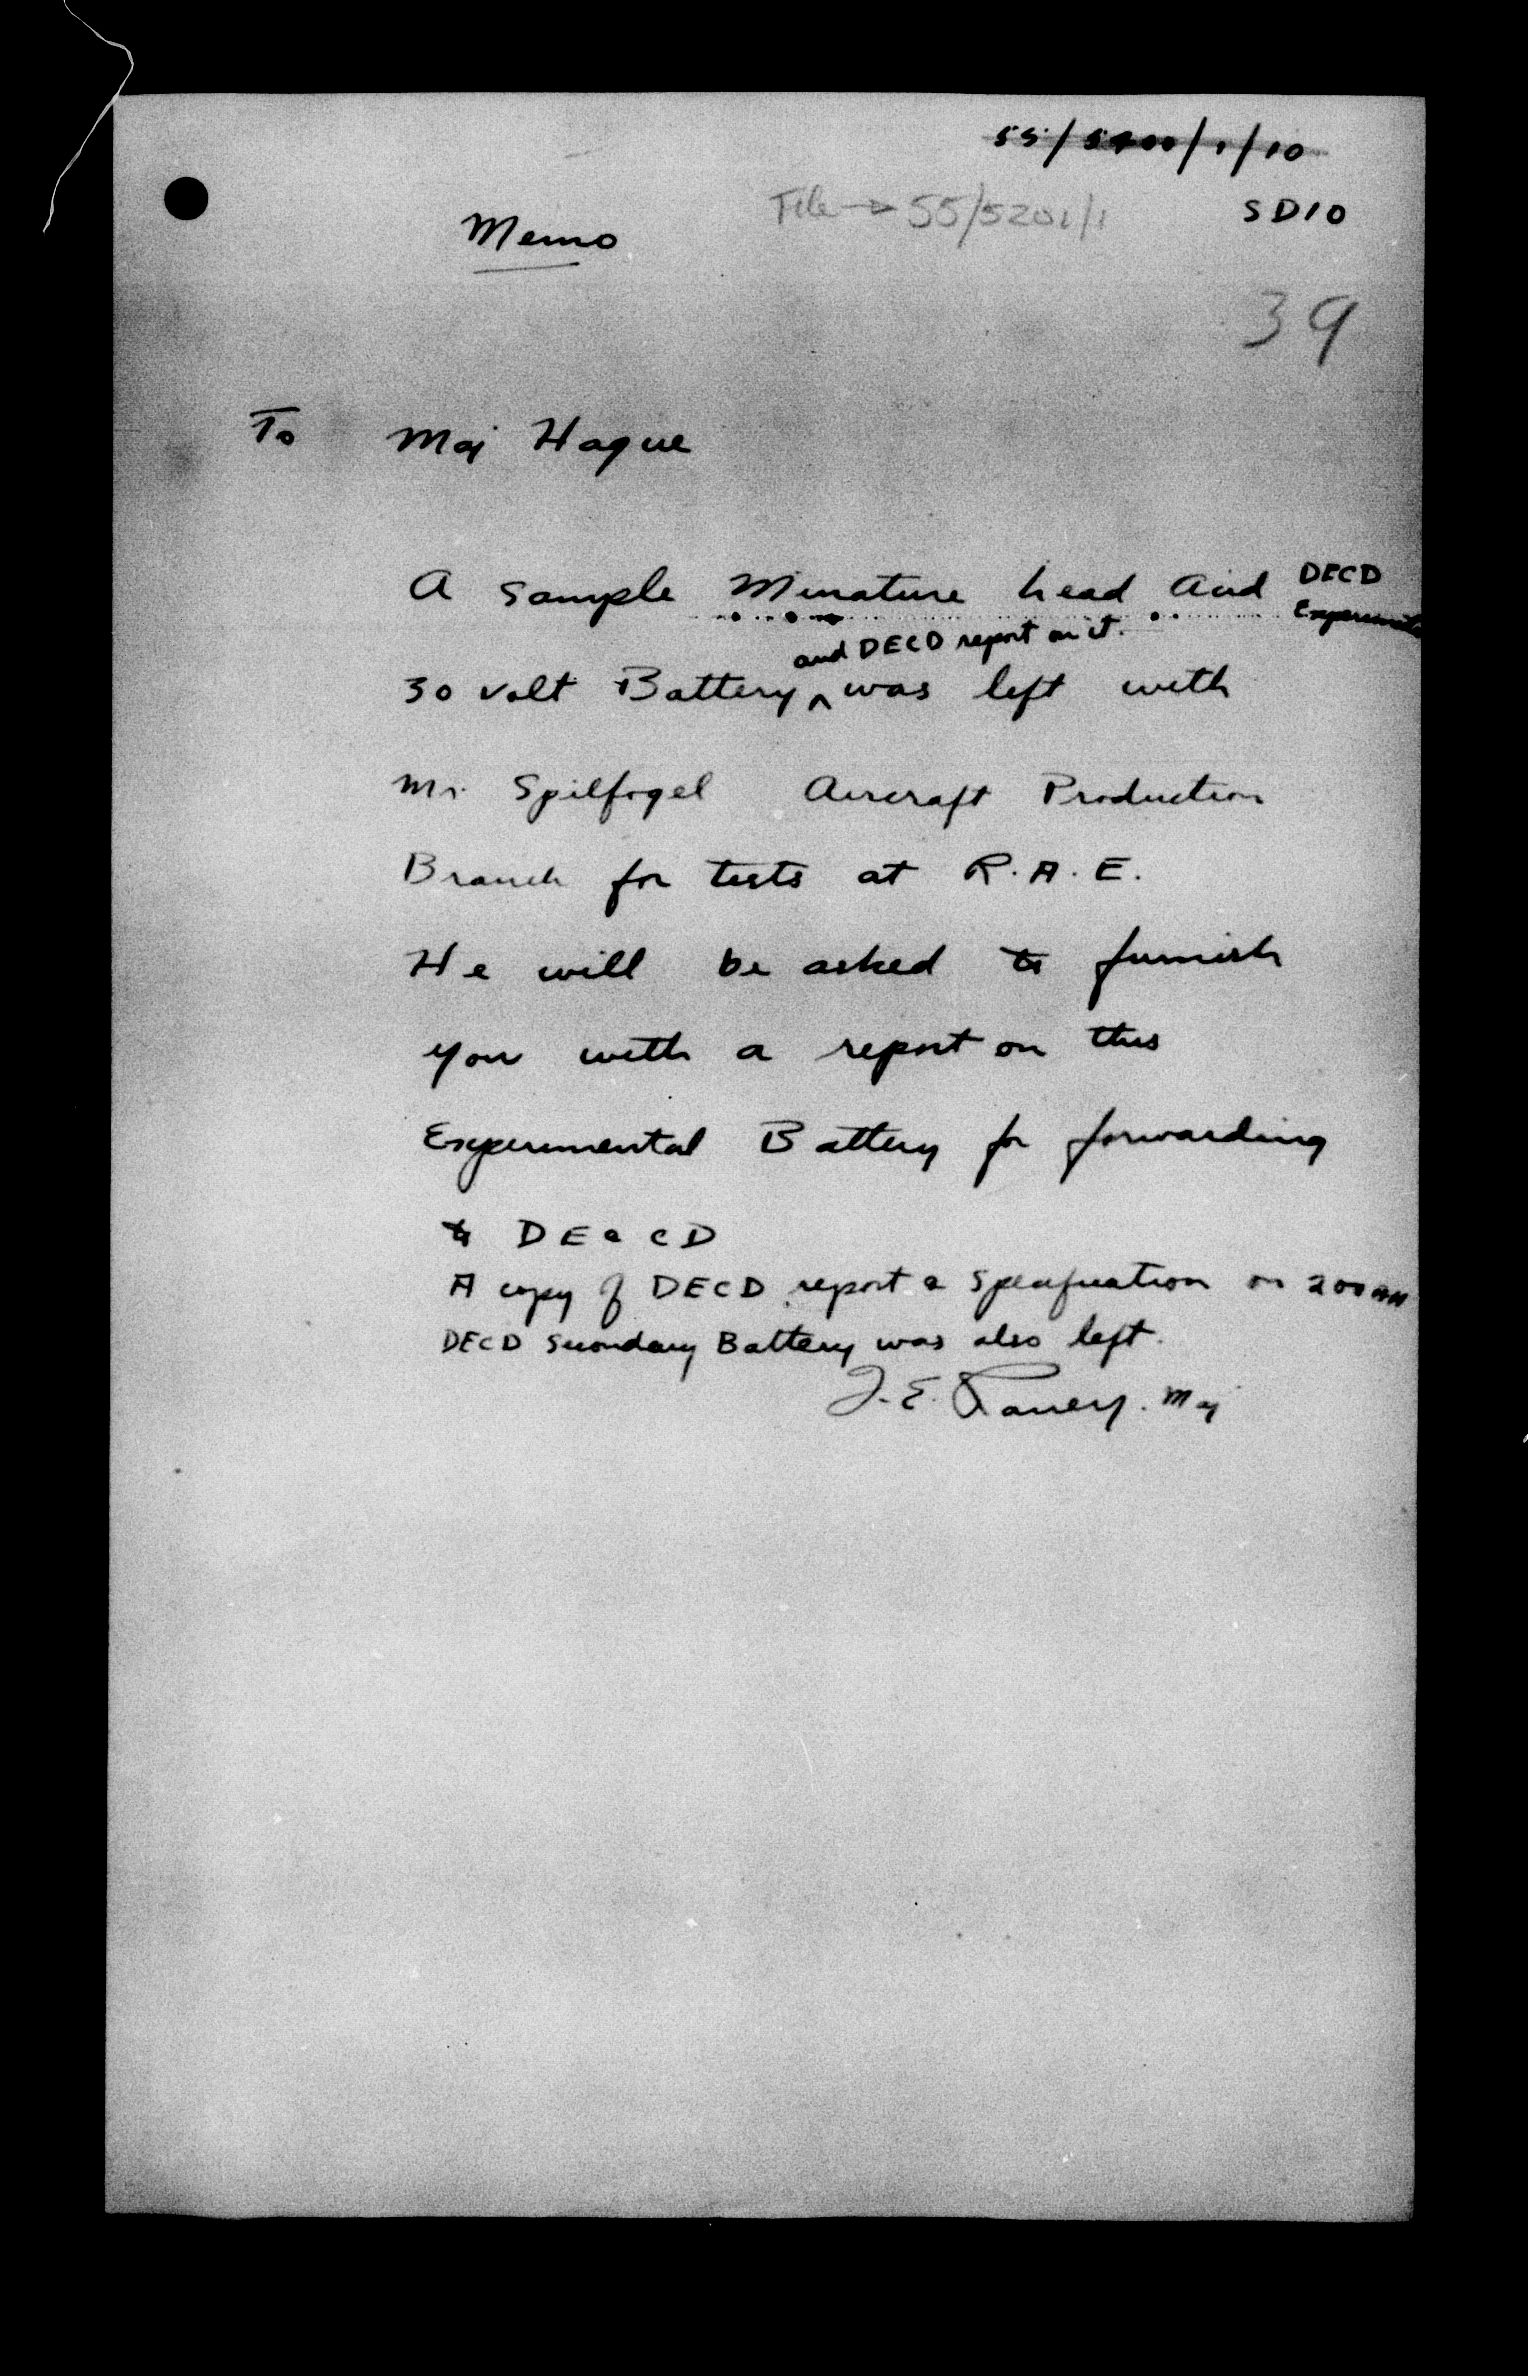 55/5400/1/10
File → 55/5201/1 SD10
Memo
39
To Maj Hague
A Sample Minature head Acid DECD
Experimental
and DECD report on it.
30 volt Battery ^ was left with
Mr. Spilfogel Aircraft Production
Branch for tests at R.A.E.
He will be asked to furnish
you with a report on this
Experimental Battery for forwarding
to DE & CD
A copy of DECD report & Specification on 200 AH
DECD Secondary Battery was also left.
J.E. Maj